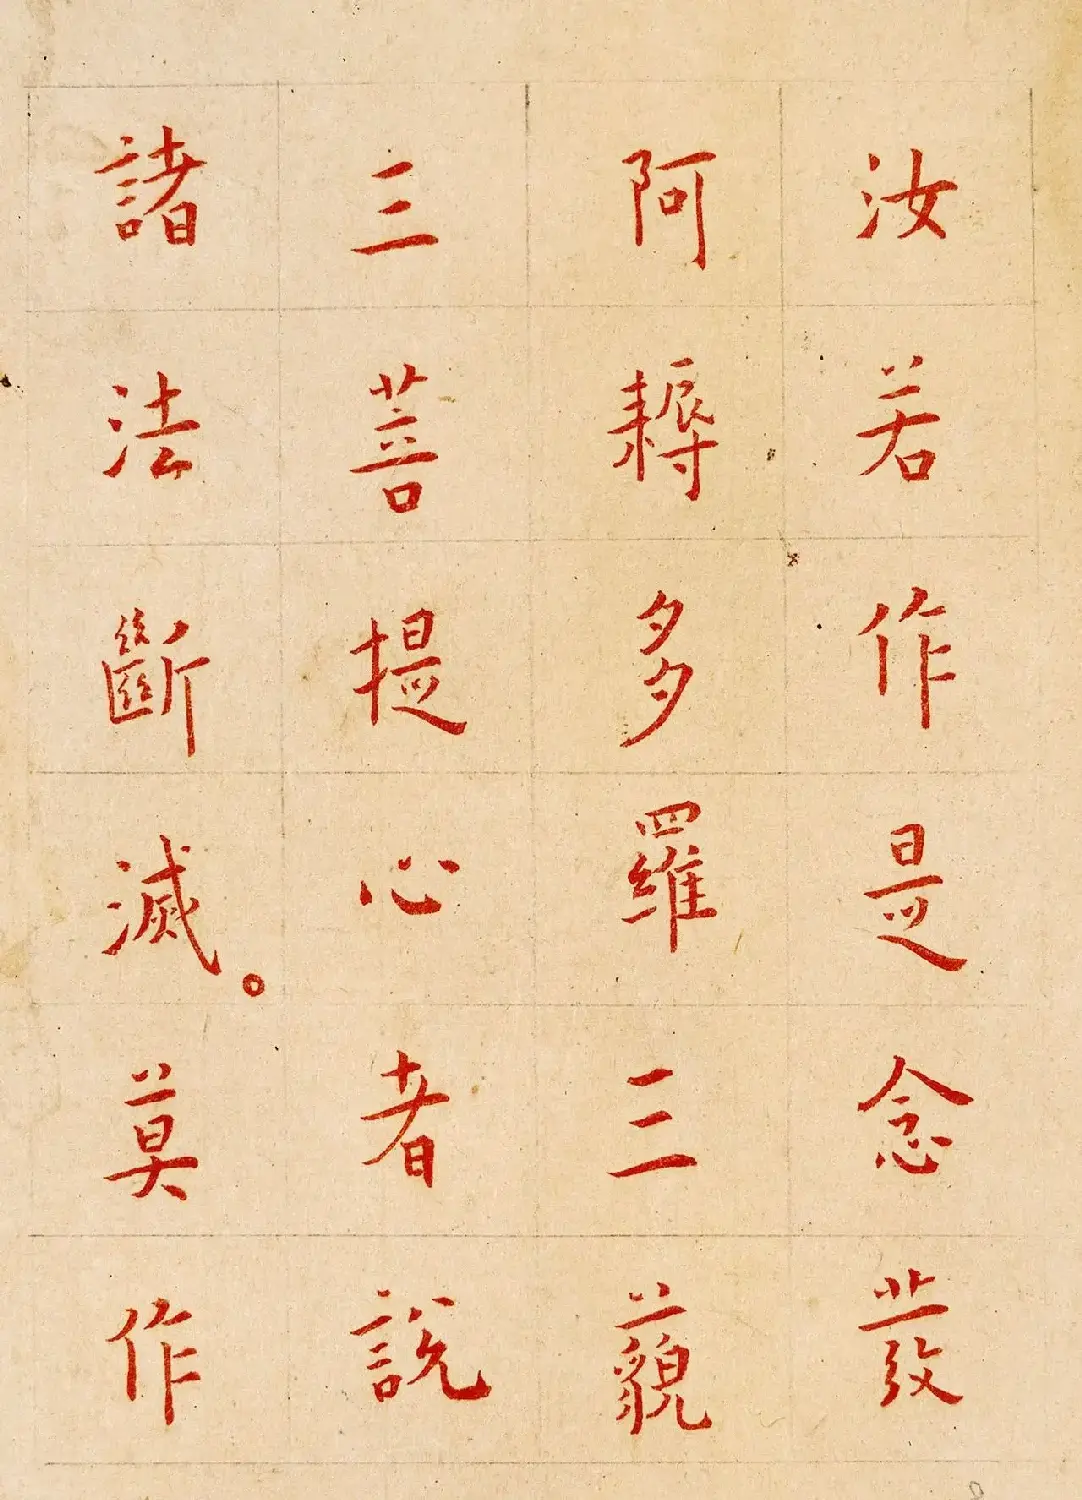 汝若作是念發
阿耨多羅三藐
三菩提心者說
諸法斷滅。莫作